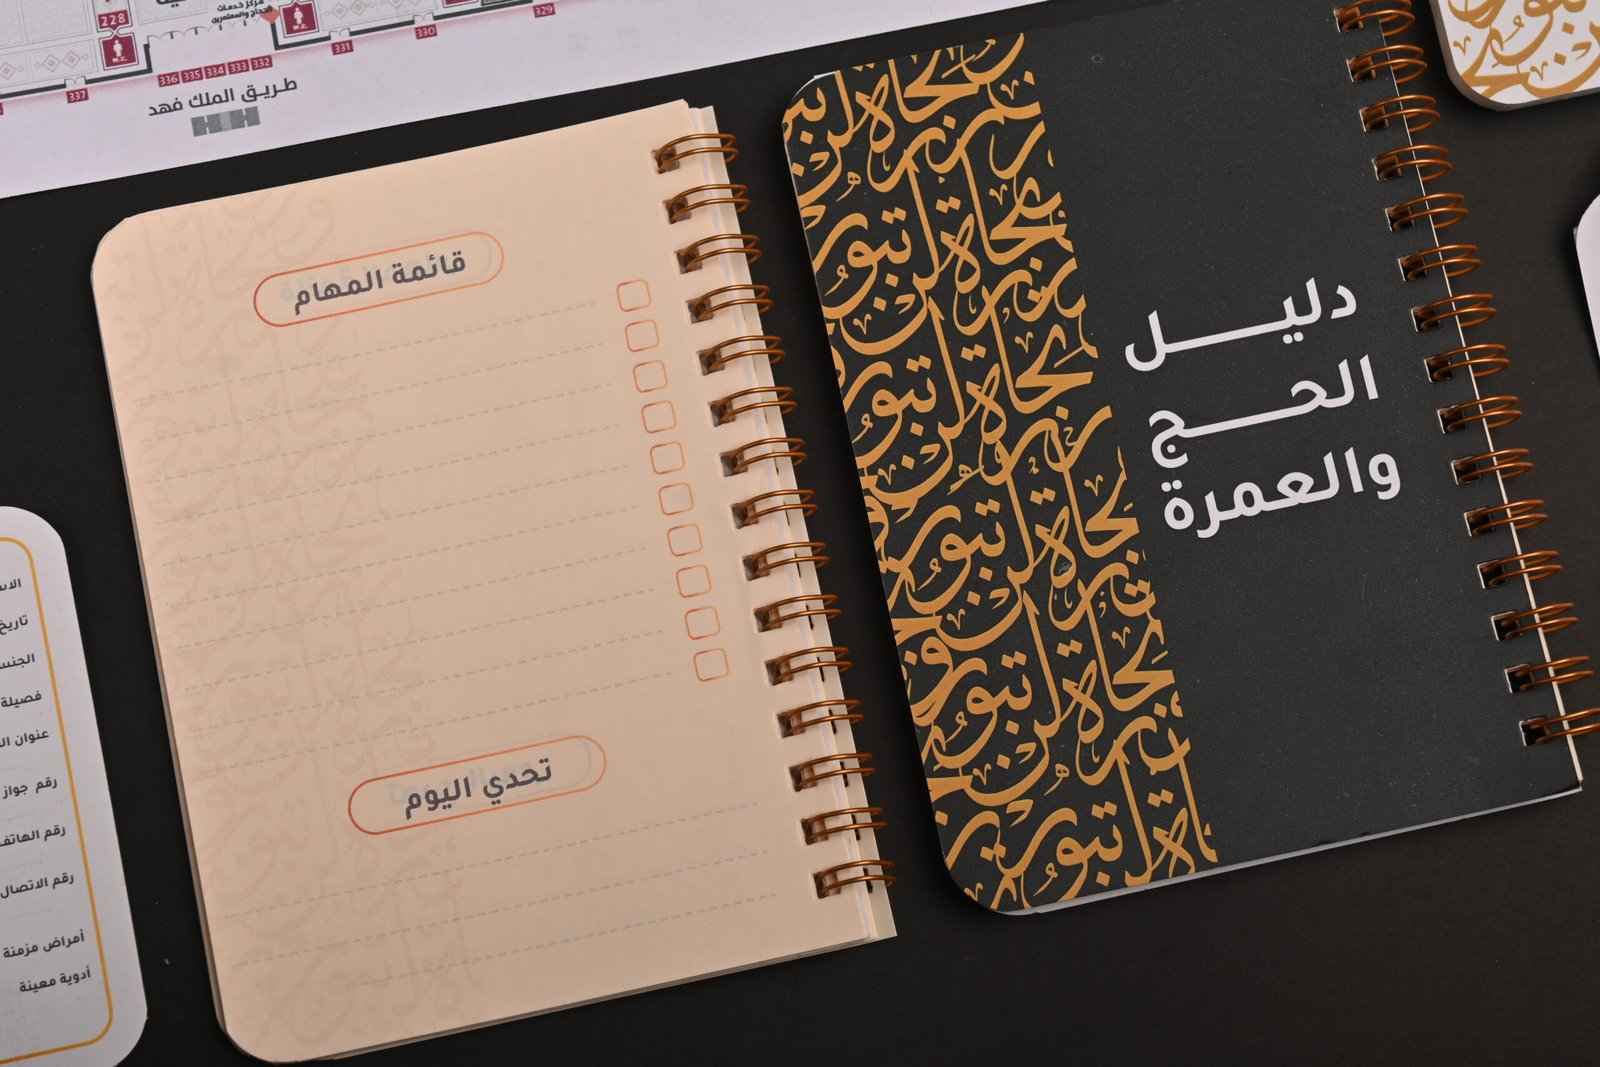 228
W.C.
مركز خدمات
الحجاج والمعتمرين
W.C.
329
330
331
336 335 334 333 332
337
طريق الملك فهد
قائمة المهام
تحدي اليوم
دليل
الحج
والعمرة
تجارة لن تبور
تاريخ
الجنس
فصيلة
عنوان
رقم جواز
رقم الهاتف
رقم الاتصال
أمراض مزمنة
أدوية معينة